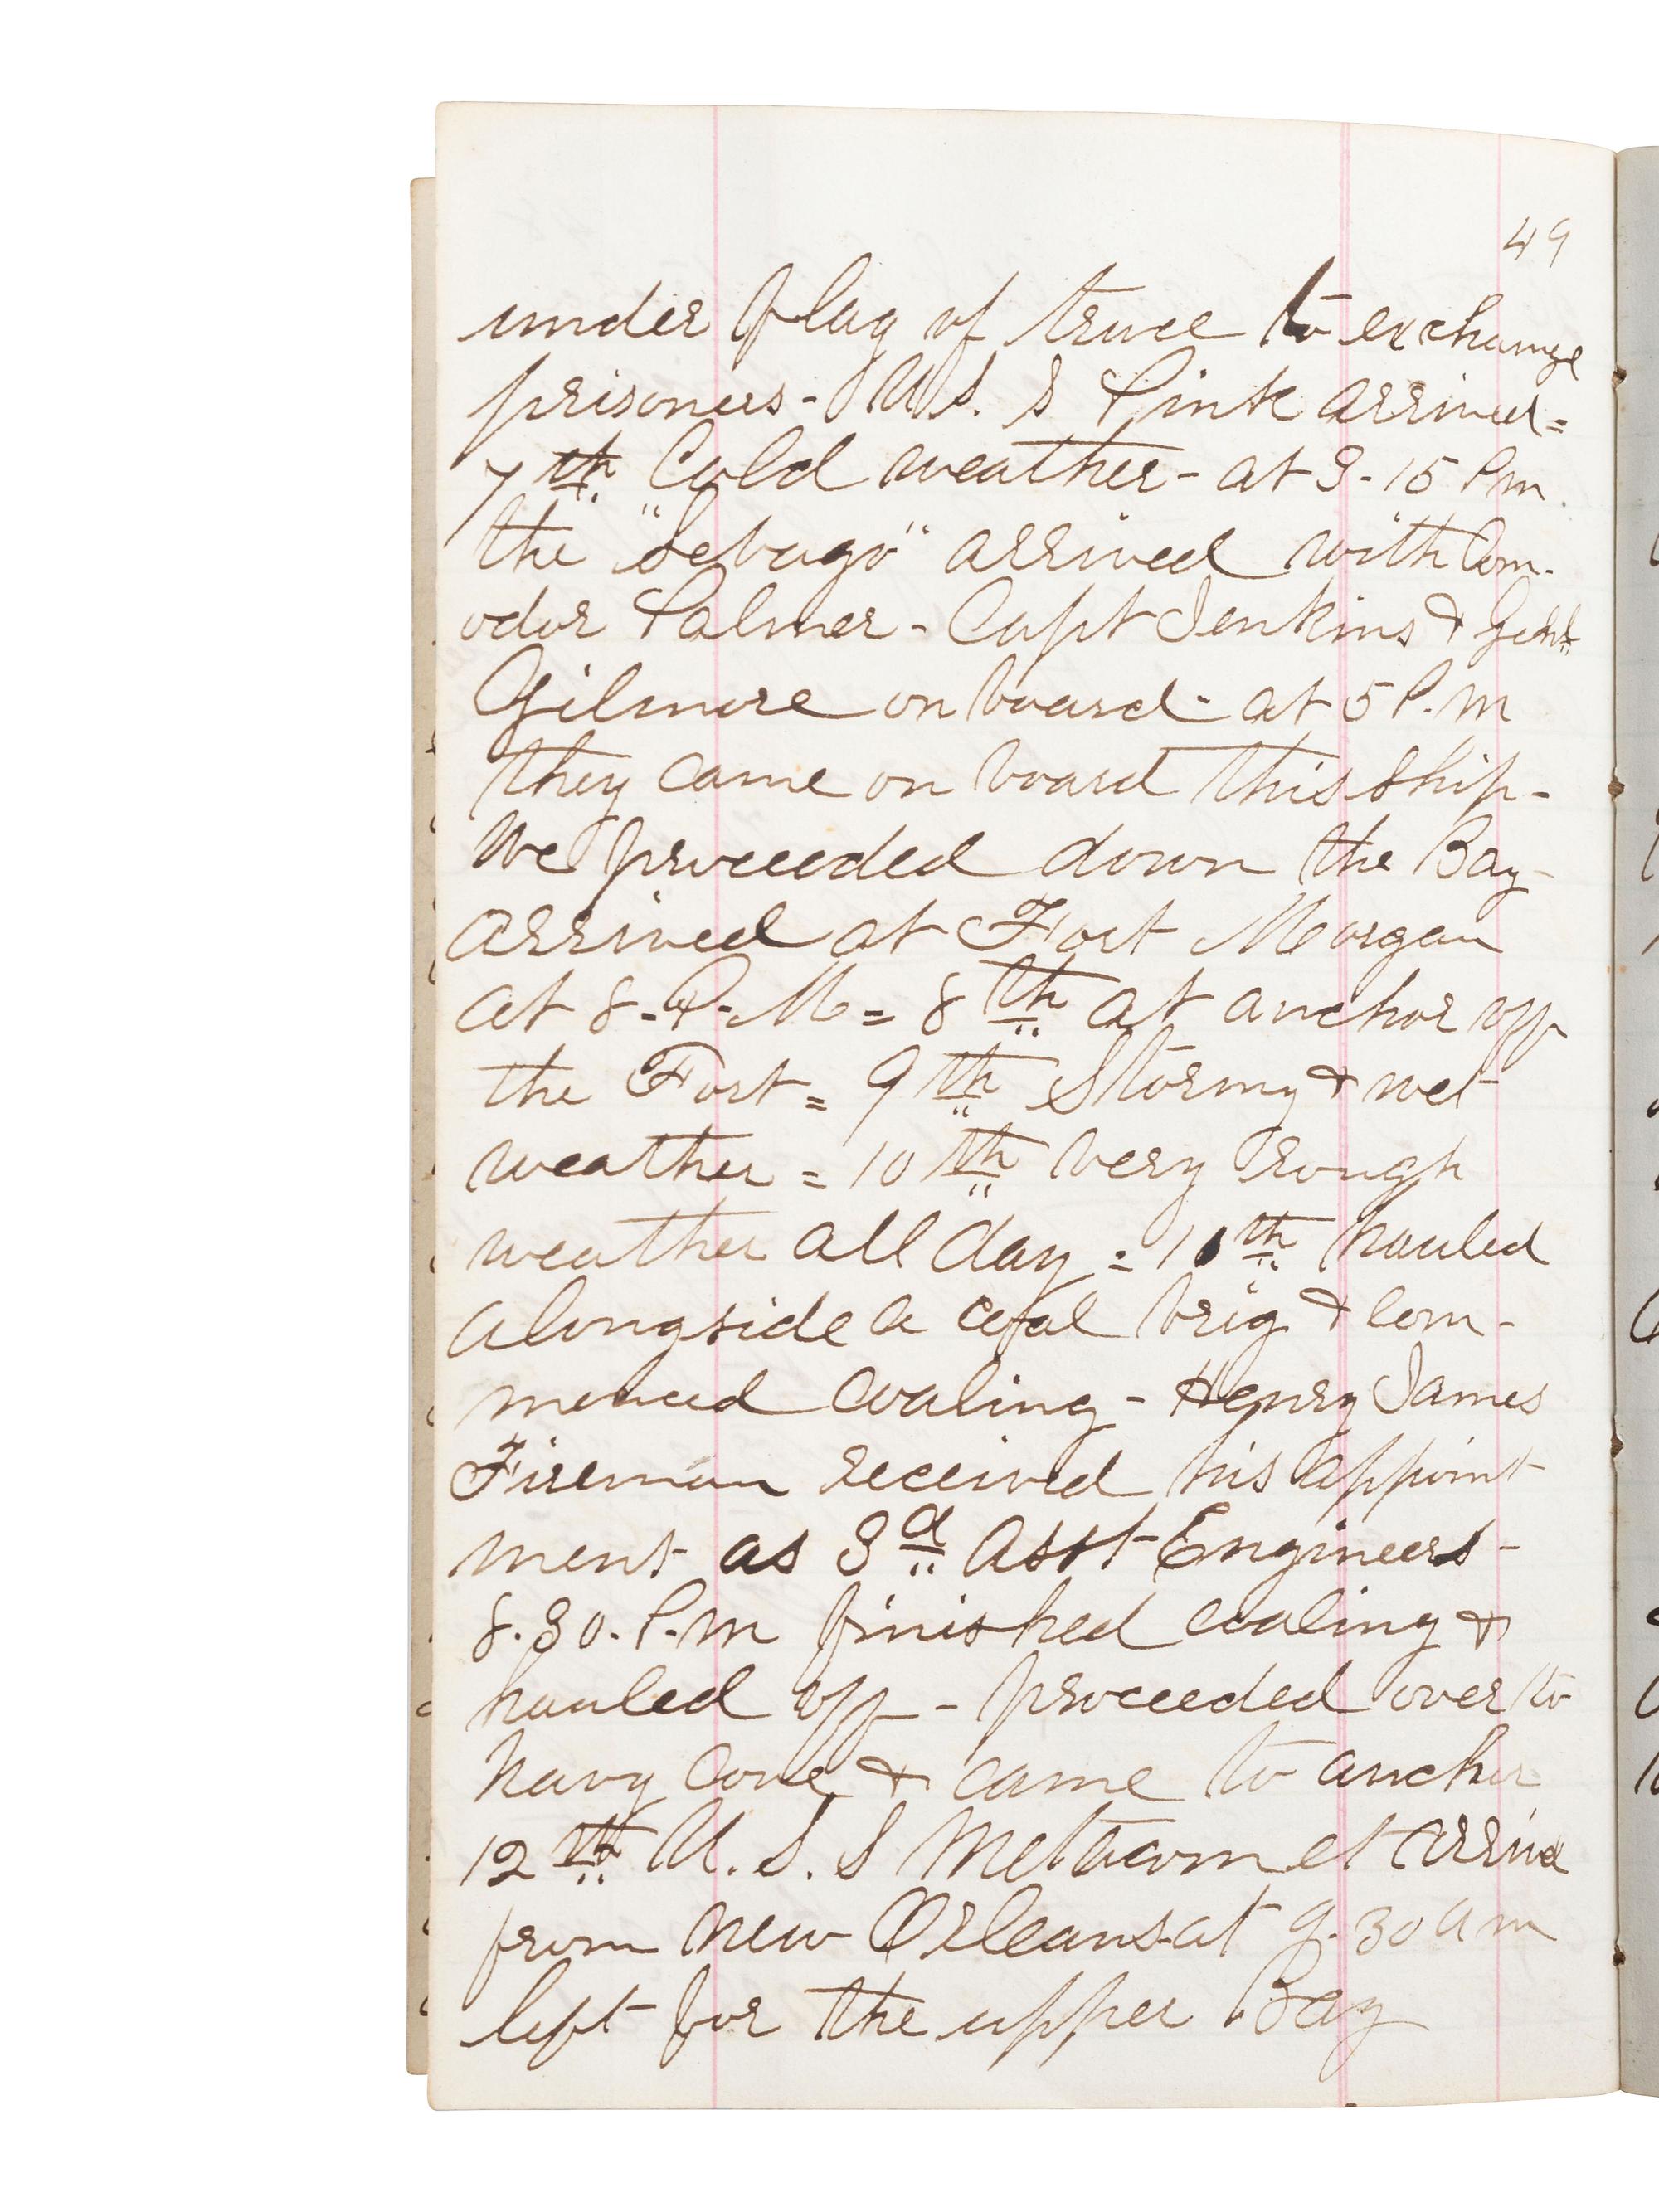 49
under flag of truce to exchange
prisoners - U.S. S Pink arrived =
7th Cold weather - at 3-15 Pm.
the "Sebago" arrived with Com-
odor Palmer - Capt Jenkins &
Gilmore on board - at 5 P.M
they came on board this ship -
We proceeded down the Bay -
arrived at Fort Morgan
at 8-P-M = 8th at anchor off
the Fort = 9th Stormy & wet
weather = 10th Very rough
weather all day = 11th hauled
alongside a coal brig & com-
menced coaling - Henry James
Fireman received his appoint
ment as 3d Asst Engineers -
8.30.P.M finished coaling &
hauled off - proceeded over to
Navy Cove & came to anchor
12th U.S.S Metacomet arrive
from New Orleans at 9.30 am
left for the upper Bay